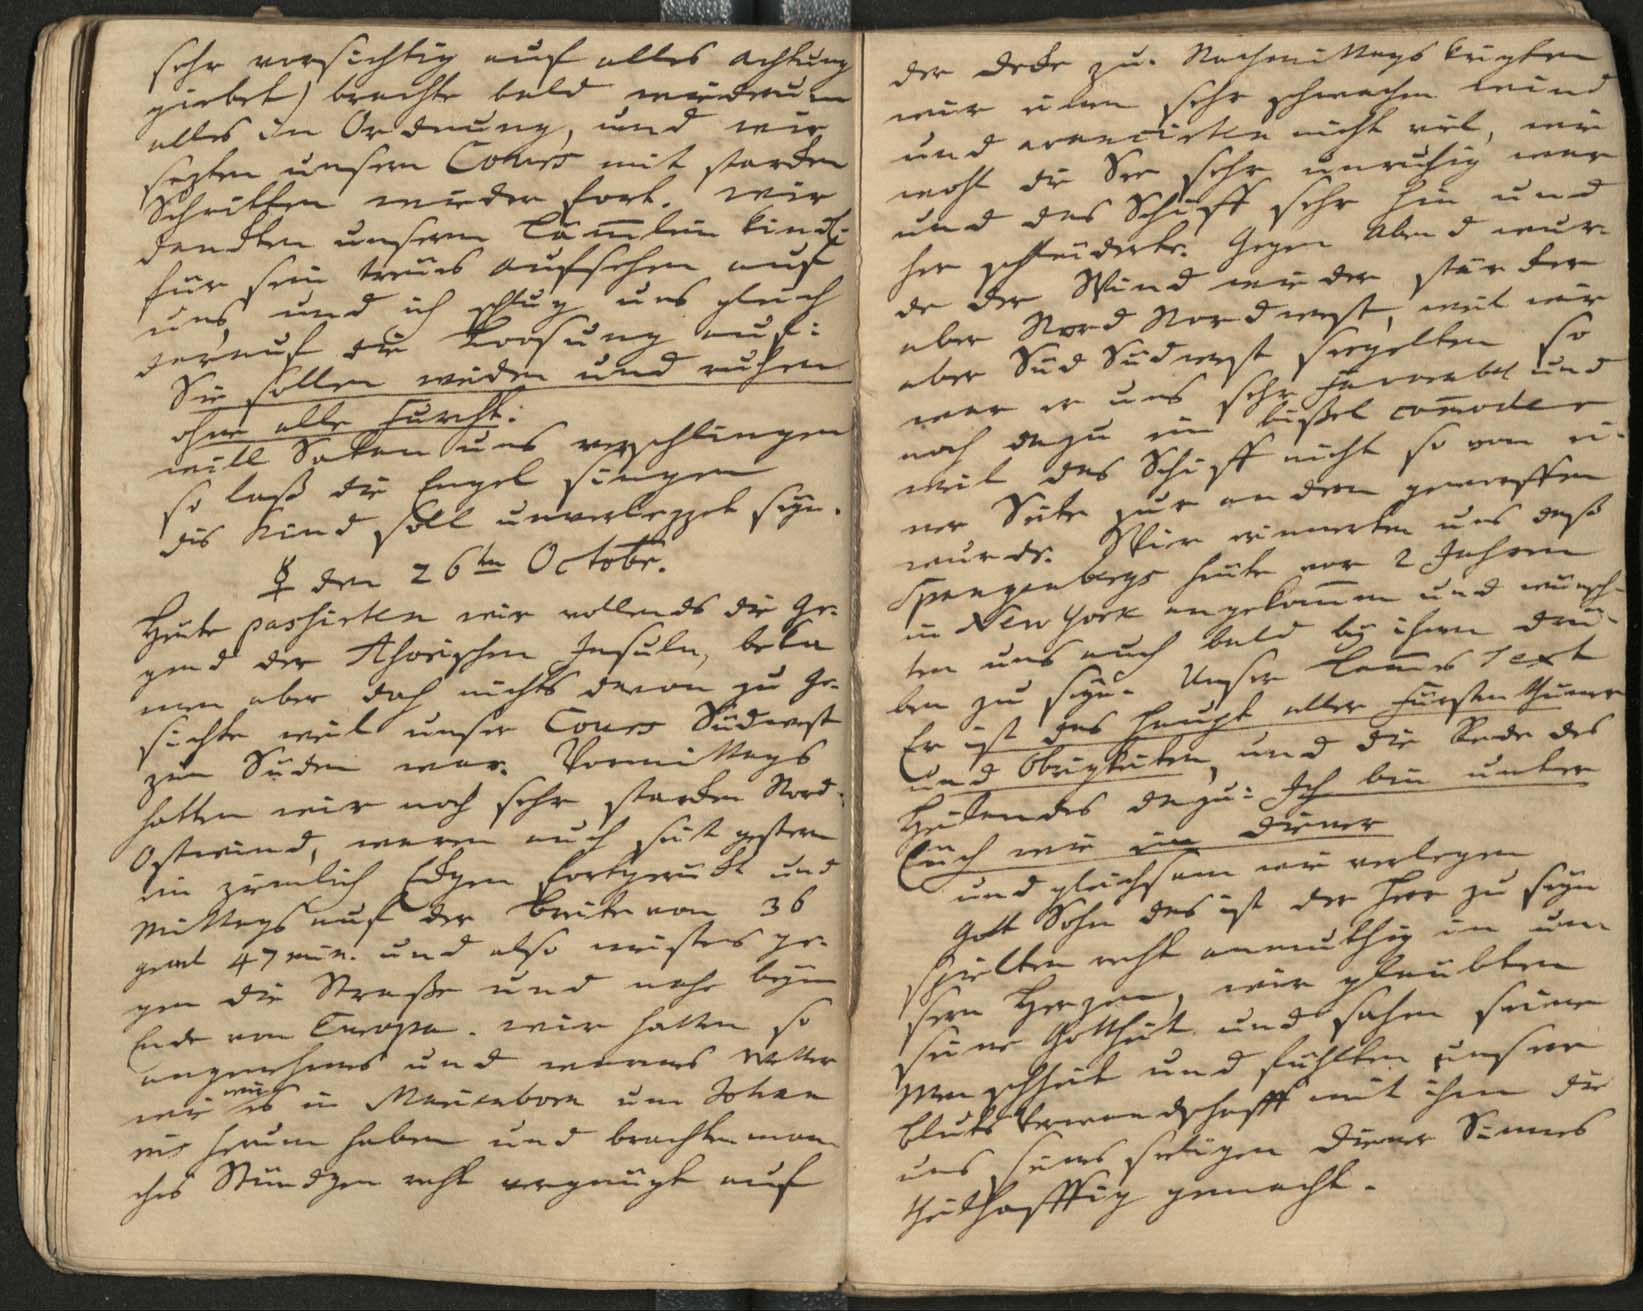 sehr vorsichtig auf alles achtung
giebet) brachte bald wiederum
alles in Ordnung, und wir
sezten unsern Cours mit starcken
Schritten wieder fort. wir
danckten unserm Lämmlein kindl:
für sein treues aufsehen auf
uns, und ich schlug uns gleich
darauf die Loosung auf:
Sie sollen weiden und ruhen
ohne alle Furcht:
will Satan uns verschlingen
so laß die Engel singen
dis Kind soll unverlezzet seyn.
☿ den 26ten Octobr.
Heute passirten wir vollends die Ge-
gend der Ahorischen Insuln, beka
men aber doch nichts davon zu Ge-
sichte weil unser Cours Südwest
zum Süden war. Vormittags
hatten wir noch sehr starcken Nord-
Ostwind, waren auch seit gestern
ein zimlich Eckgen fortgerückt und
Mittags auf der Breite von 36
grad 47 min. und also meistens ge-
gen die Straße und nahe beym
Ende von Europa. wir hatten so
angenehmes und warmes Wetter
wie wirs in Marienborn um Johan
nis herum haben und brachten man
ches Stündgen recht vergnügt auf
der Decke zu. Nachmittags kriegten
wir einen sehr schwachen wind
und avancirten nicht viel, wie
wohl die See sehr unruhig war
und das Schiff sehr hin und
her schleuderte. Gegen Abend wur-
de der Wind wieder stärcker
aber Nord Nordwest, weil wir
aber Süd Südwest seegelten so
war er uns sehr favorabel und
noch dazu ein bißel comoder
weil das Schiff nicht so von ei-
ner Seite zur andern geworffen
wurde. Wir erinnerten uns daß
Spangenbergs heute vor 2 Jahren
in New York angekommen und wünsch-
ten uns auch bald bey ihnen drü-
ben zu seyn. Unser Lamms Text
Er ist das Haupt aller Fürstenthümer
und Obrigkeiten, und die Rede des
Heilandes dazu: Ich bin unter
Euch wie ein Diener
und gleichsam wie verlegen
Gott Sohn das ist der Herr zu seyn
spielten recht anmuthig in un-
sern Herzen, wir glaubten
seine Gottheit und sahen seine
Menschheit und fühlten unsere
Bluts Verwandschafft mit ihm die
uns seines seeligen Diener Sinnes
theilhafftig gemacht.